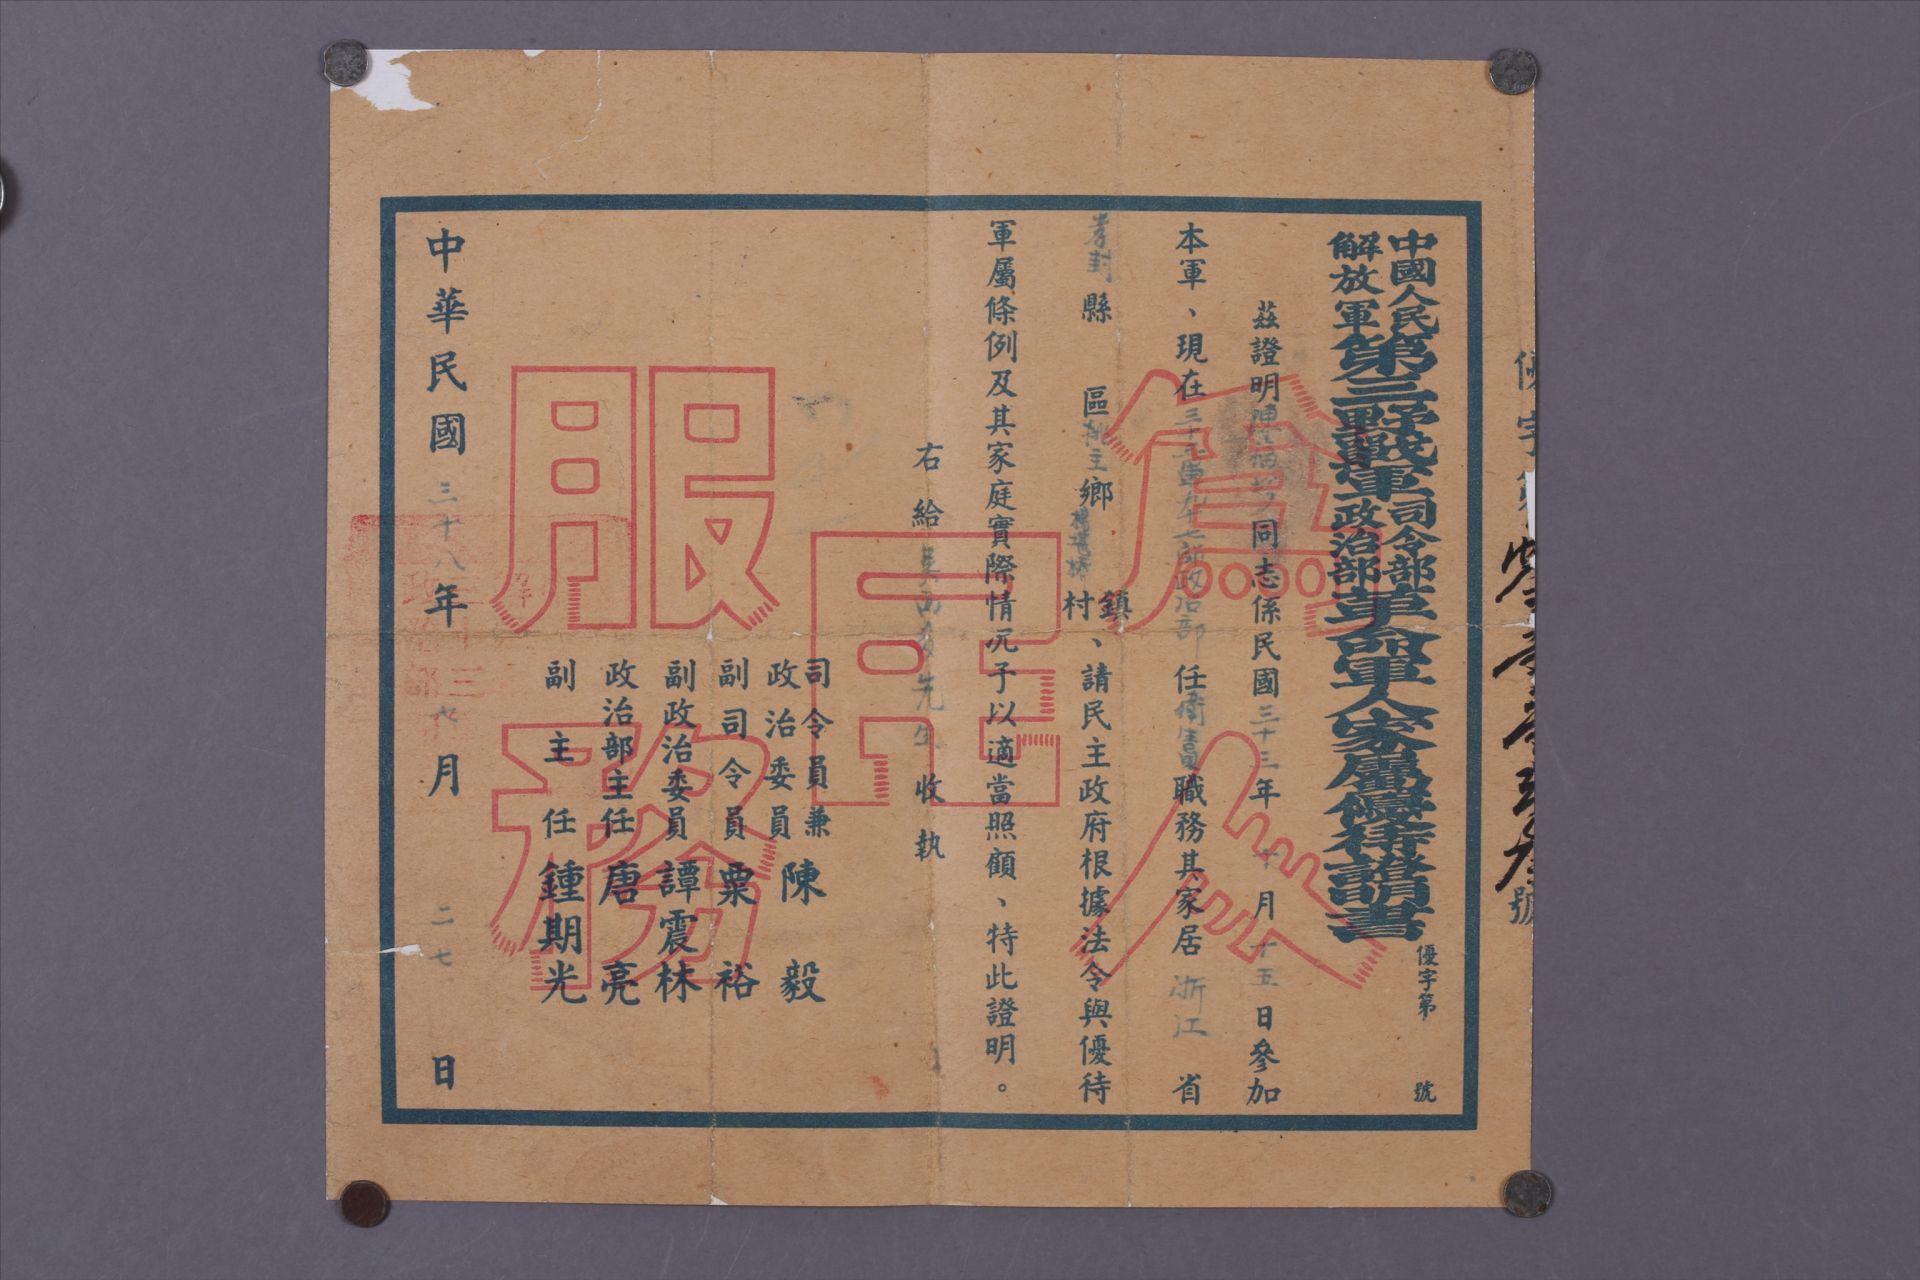 優字第
號
中國人民解放軍第三野戰軍司令部政治部革命軍人家屬優待證明書
優字第 號
茲證明 同志係民國三十三年十月十五日參加
本軍、現在三十 軍 政治部任衛生員職務其家居浙江省
孝封縣 區 鄉 鎮村、請民主政府根據法令與優待
軍屬條例及其家庭實際情况予以適當照顧、特此證明。
右給 先生收執
司令員兼政治委員 陳毅
副司令員 粟裕
副政治委員 譚震林
政治部主任 唐亮
副主任 鍾期光
中華民國三十八年七月二七日
為人民服務